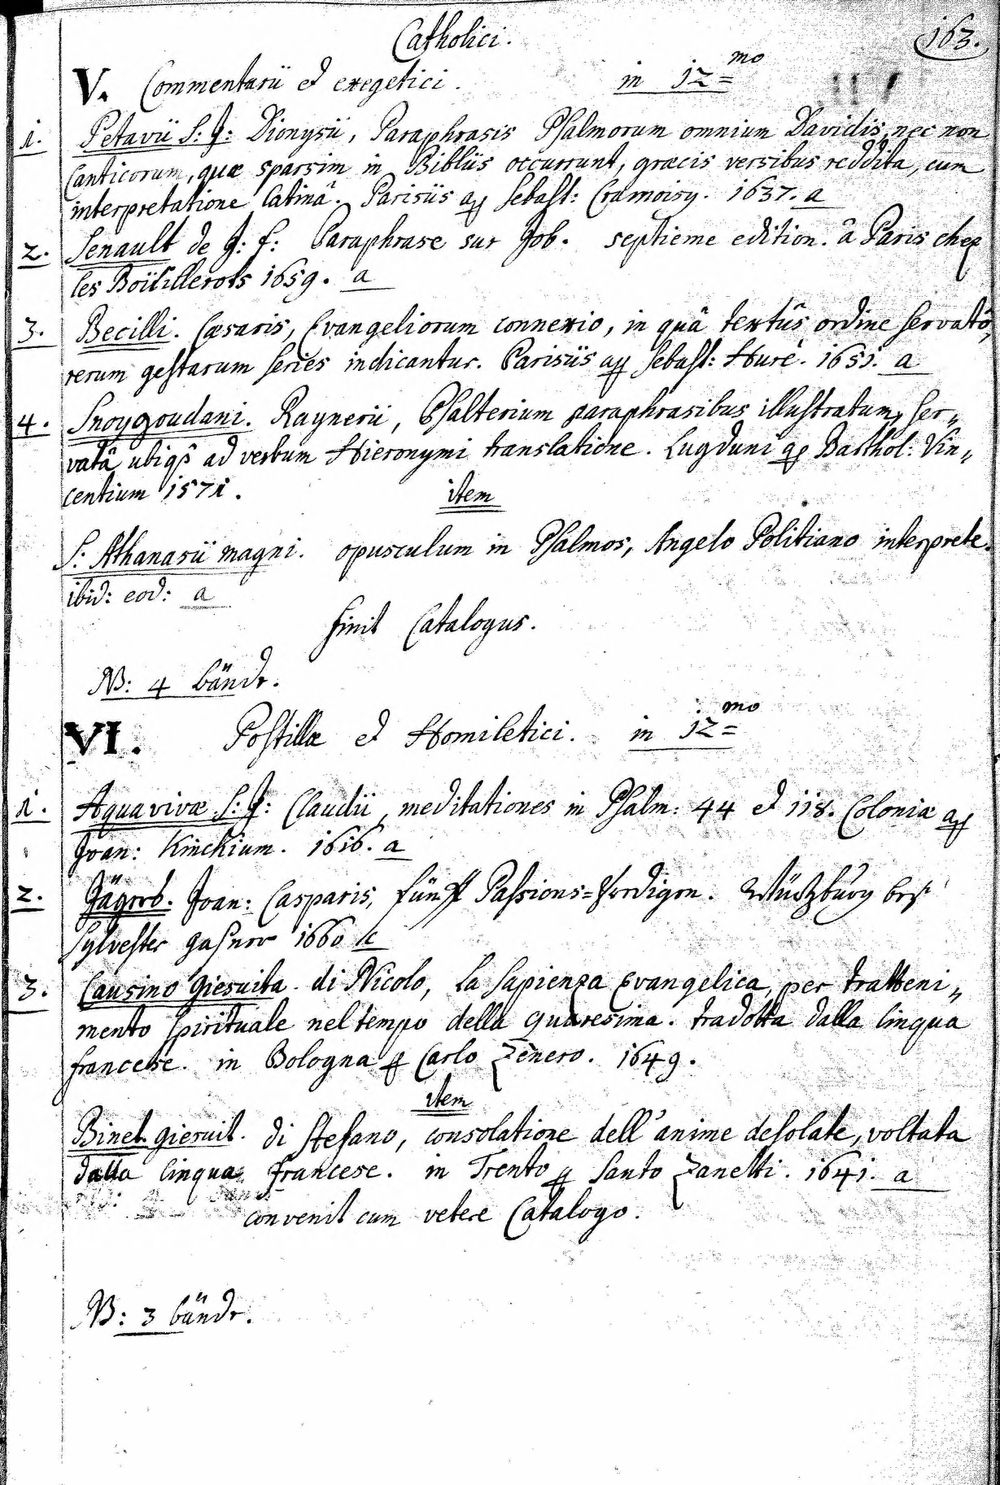 Catholici.
163.
V. Commentarii et exegetici. in 12=mo
1. Petavii S: J: Dionysii, Paraphrasis Psalmorum omnium Davidis, nec non
Canticorum, quæ sparsim in Bibliis occurrunt, græcis versibus reddita, cum
interpretatione latinâ. Parisiis ap Sebast: Cramoisy. 1637. a
2. Senault de J: f: Paraphrase sur Job. septieme edition. â Paris chez
les Boüillerots 1659. a
3. Becilli. Cæsaris, Evangeliorum connexio, in quâ textûs ordine servatô,
rerum gestarum series indicantur. Parisiis ap Sebast: Huré. 1651. a
4. Snoygoudani. Raynerii, Psalterium paraphrasibus illustratum, ser„
vatâ ubiqȝ ad verbum Hieronymi translatione. Lugduni ap Barthol: Vin„
centium 1571.
item
S: Athanasii magni. opusculum in Psalmos, Angelo Politiano interprete.
ibid: eod: a
finit Catalogus.
NB: 4 bände.
VI. Postillæ et Homiletici. in 12=mo
1. Aquavivæ S: J: Claudii, meditationes in Psalm: 44 et 118. Coloniæ ap
Joan: Kinckium. 1616. a
2. Jägers. Joan: Casparis, fünff Passions=Predigen. Würtzburg bey
Sylvester Gaßner 1660
3. Causino Giesuita. di Nicolo, la Sapienza Evangelica, per tratteni„
mento spirituale nel tempo della Quaresima. tradotta dalla lingua
francese. in Bologna p Carlo Zenero. 1649.
item
Binet giesuit. di Stefano, consolatione dell'anime desolate, voltata
dalla lingua francese. in Trento p Santo Zanetti. 1641. a
convenit cum vetere Catalogo.
NB: 3 bände.